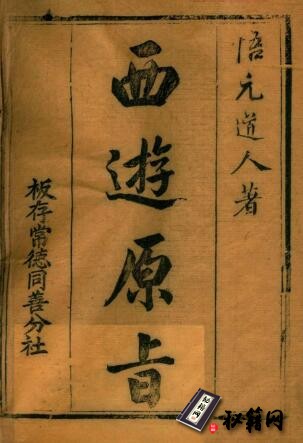 悟元道人著
西遊原旨
板存常德同善分社
秘籍网